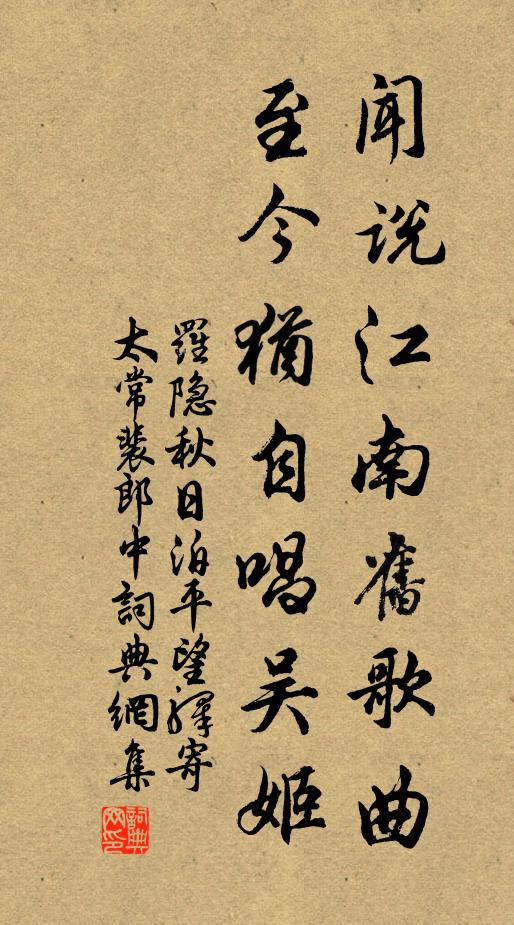 闻说江南舊歌曲
至今猶自唱吴姬
羅隐秋日泊平望驿寄
太常裴郎中詞典網集
詞典网印